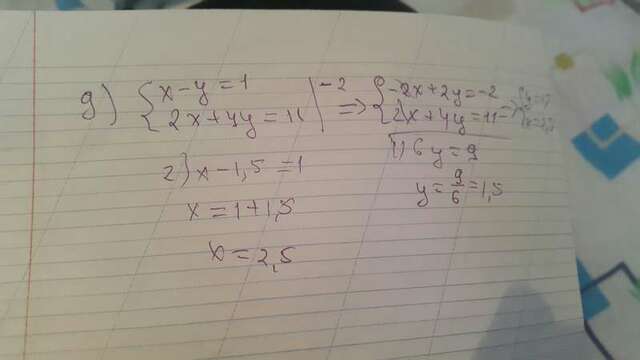 g) { x-y=1 |-2 => { -2x+2y=-2
2x+4y=11 2x+4y=11
1) 6y=9
y=9/6=1,5
2) x-1,5=1
x=1+1,5
x=2,5